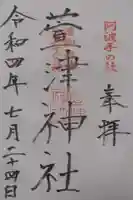 阿波手の杜
奉拝
萱津神社
令和四年七月二十四日